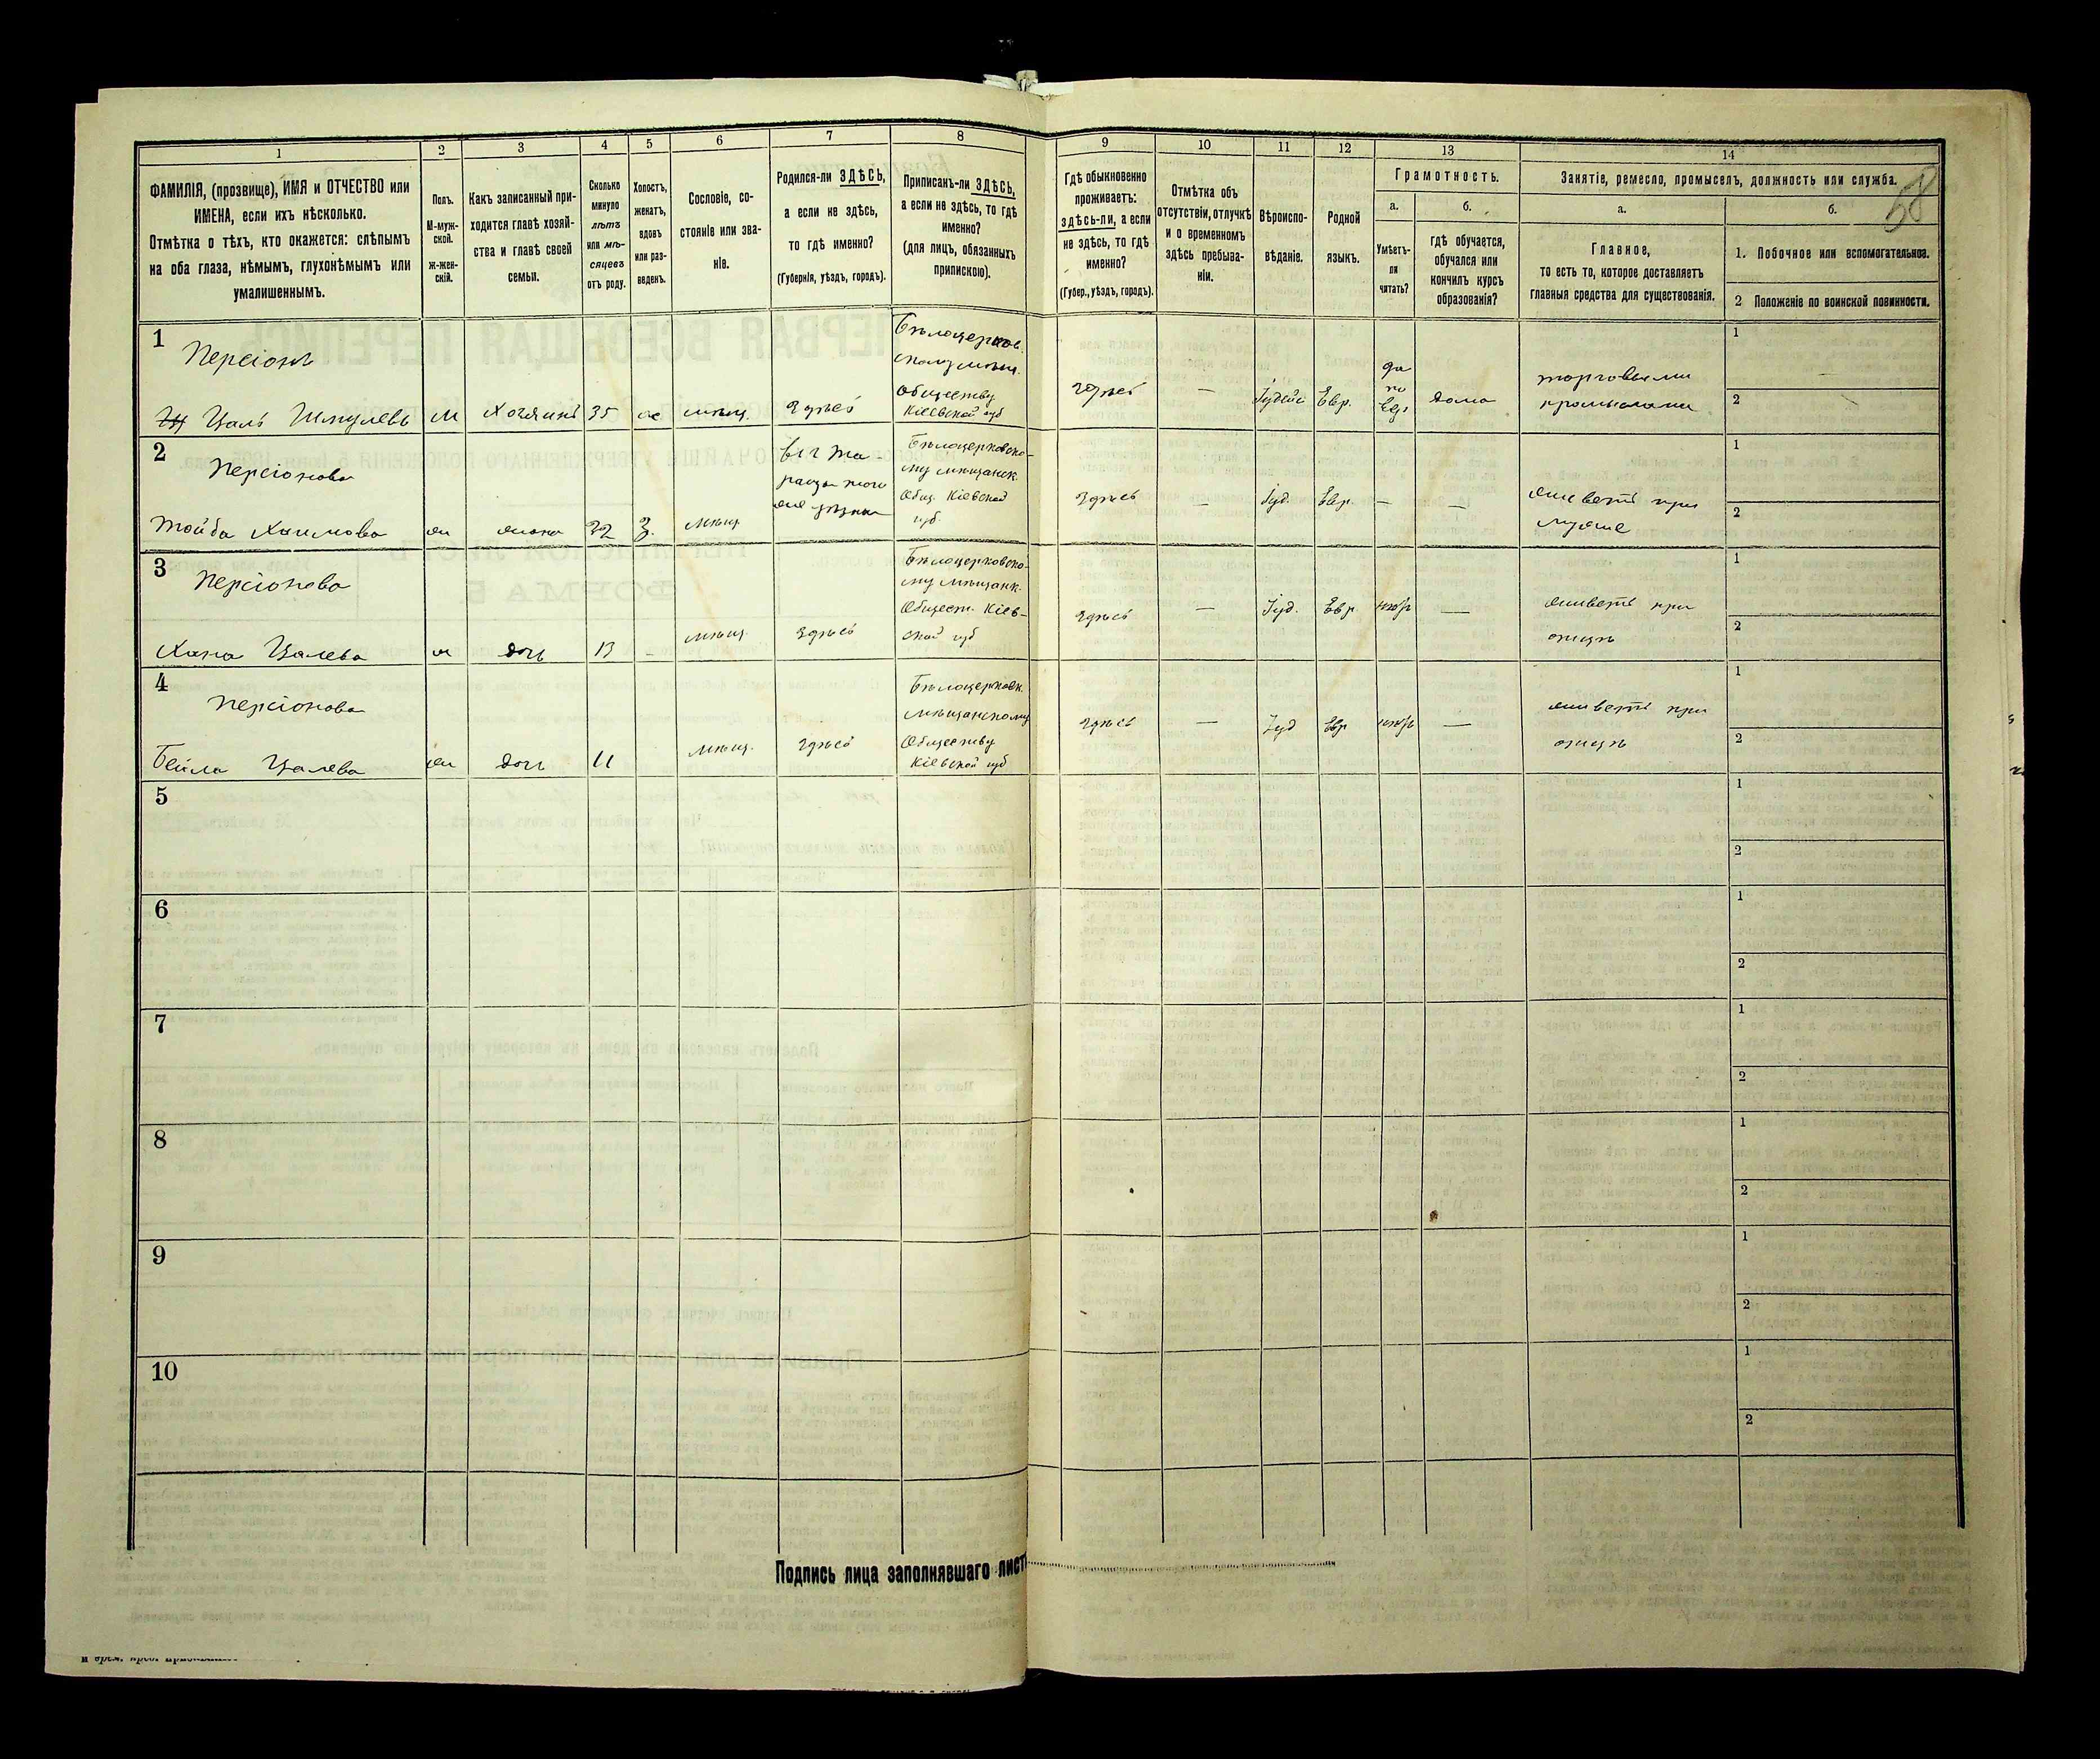 1
2
3
4
5
6
7
8
ФАМИЛІЯ, (прозвище), ИМЯ и ОТЧЕСТВО или
ИМЕНА, если ихъ нѣсколько.
Отмѣтка о тѣхъ, кто окажется: слѣпымъ
на оба глаза, нѣмымъ, глухонѣмымъ или
умалишеннымъ.
Полъ.
М-муж-
ской.
ж-жен-
скій.
Какъ записанный при-
ходится главѣ хозяй-
ства и главѣ своей
семьи.
Сколько
минуло
лѣтъ
или мѣ-
сяцевъ
отъ роду.
Холостъ,
женатъ,
вдовъ
или раз-
веденъ.
Сословіе, со-
стояніе или зва-
ніе.
Родился-ли ЗДѢСЬ,
а если не здѣсь,
то гдѣ именно?
(Губернія, уѣздъ, городъ).
Приписанъ-ли ЗДѢСЬ,
а если не здѣсь, то гдѣ
именно?
(для лицъ, обязанныхъ
припискою).
9
10
11
12
13
14
Гдѣ обыкновенно
проживаетъ:
здѣсь-ли, а если
не здѣсь, то гдѣ
именно?
(Губер., уѣздъ, городъ).
Отмѣтка объ
отсутствіи, отлучкѣ
и о временномъ
здѣсь пребыва-
ніи.
Вѣроиспо-
вѣданіе.
Родной
языкъ.
Грамотность.
а.
б.
Умѣетъ-
ли
читать?
гдѣ обучается,
обучался или
кончилъ курсъ
образованія?
Занятіе, ремесло, промыселъ, должность или служба.
58
а.
б.
Главное,
то есть то, которое доставляетъ
главныя средства для существованія.
1. Побочное или вспомогательное.
2 Положеніе по воинской повинности.
1
Персіонъ
Цаль Шмулевъ
М
Хозяинъ
35
ж
мѣщ.
Здѣсь
Бѣлоцерков.
скому мѣщ.
Обществу
Кіевской губ
здѣсь
—
Іудейс
Евр.
да
по
Евр
дома
торговыми
промыслами
1
—
2
2
Персіонова
Тойба Хаимова
ж
жена
32
З.
мѣщ
Бѣлоцерковско-
му мѣщанск.
Общ. Кіевской
губ.
здѣсь
—
Іуд.
Евр.
—
—
живетъ при
мужѣ
1
2
3
Персіонова
Хана Цалева
ж
дочь
13
—
мѣщ.
Здѣсь
Бѣлоцерковско-
му мѣщанк.
Общест. Кіев-
ской губ
здѣсь
—
Іуд.
Евр
—
живетъ при
отцѣ
1
2
4
Персіонова
Бейла Цалева
ж
дочь
11
мѣщ.
Здѣсь
Бѣлоцерковк.
мѣщанскому
Обществу
Кіевской губ
здѣсь
—
Іуд
Евр
—
живетъ при
отцѣ
1
2
5
1
2
6
1
2
7
1
2
8
1
2
9
1
2
10
1
2
Подпись лица заполнявшаго листъ